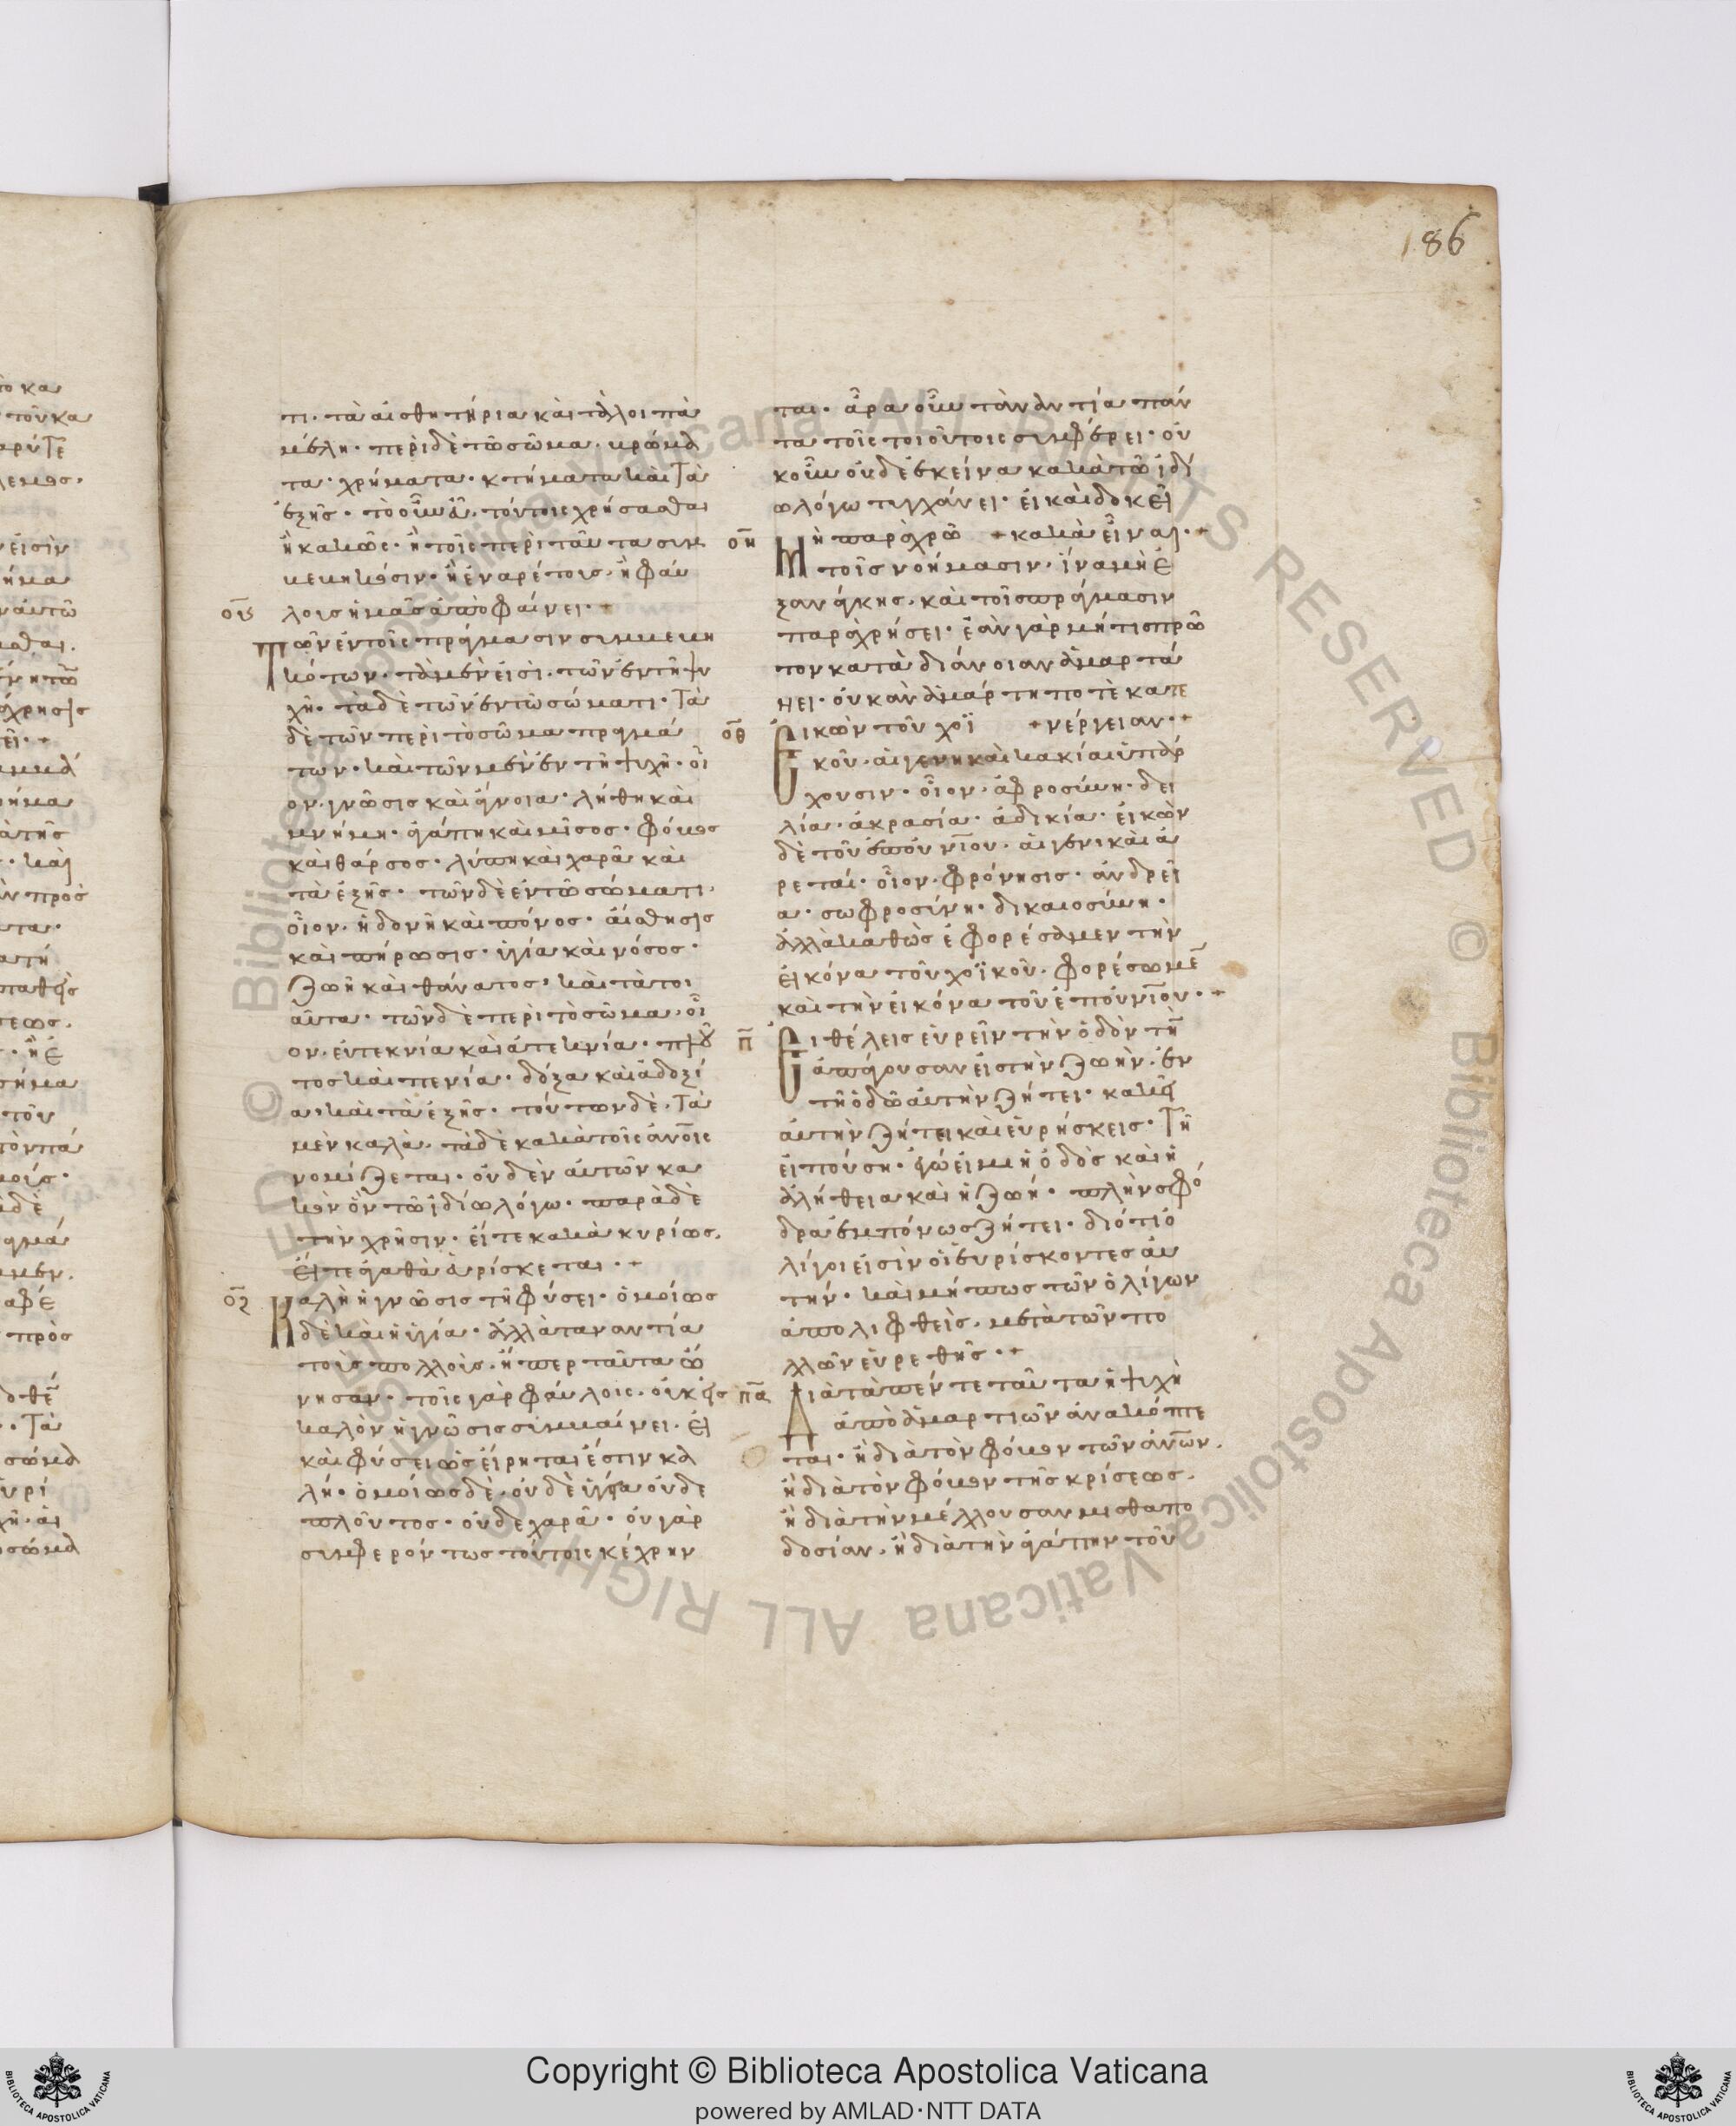 186
τι· τὰ αἰσθητήρια καὶ τὰ λοιπὰ
μέλη· περὶ δὲ τῶ σῶμα· βρώμα
τα· χρήματα· κτήματα καὶ τὰ
ἑξῆς· τὸ οὖν εὖ τούτοις χρήσασθαι
ἢ κακῶς· ἢ τοῖς περὶ ταῦτα συμ
βεβηκόσιν· ἢ ἐναρέτους· ἢ φαύ
ος λους ἡμᾶς ἀποφαίνει·+
Τῶν ἐν τοῖς πράγμασιν συμβεβη
κότων· τὰ μέν εἰσὶ τῶν ἐν τῆ ψυ
χῆ· τὰ δὲ τῶν ἐν τῶ σώματι· τὰ
δὲ τῶν περὶ τὸ σῶμα πραγμά
των· καὶ τῶν μὲν ἐν τῆ ψυχῆ· οἷ
ον· γνῶσις καὶ ἄγνοια· λήθη καὶ
μνήμη· ἀγάπη καὶ μῖσος· φόβος
καὶ θάρσος· λύπη καὶ χαρὰ καὶ
τὰ ἑξῆς· τῶν δὲ ἐν τῶ σώματι·
οἷον· ἡδονὴ καὶ πόνος· αἴσθησις
καὶ πήρωσις· ὑγία καὶ νόσος·
ζωὴ καὶ θάνατος· καὶ τὰ τοι
αῦτα· τῶν δὲ περὶ τὸ σῶμα· οἷ
ον· εὐτεκνία καὶ ἀτεκνία· πλοῦ
τος καὶ πενία· δόξα καὶ ἀδοξί
α· καὶ τὰ ἑξῆς· τούτων δὲ τὰ
μὲν καλὰ· τὰ δὲ κακὰ τοῖς ἀνοις
νομίζεται· οὐδὲν αὐτῶν κα
κὸν ὂν τῶ ἰδίω λόγω· παρὰ δὲ
τὴν χρῆσιν· εἴτε κακὰ κυρίως·
εἴτε ἀγαθὰ εὑρίσκεται·+
οζ Καλὴ ἡ γνῶσις τῆ φύσει· ὁμοίως
δὲ καὶ ἡ ὑγία· ἀλλὰ τἀναντία
τοὺς πολλοὺς· ἤπερ ταῦτα ὤ
νησαν· τοῖς γὰρ φαύλοις· οὐκ εἰς
καλὸν ἡ γνῶσις συμβαίνει· εἰ
καὶ φύσει ὡς εἴρηται ἐστὶν κα
λή· ὁμοίως δὲ· οὐδὲ ὑγεία οὐδὲ
πλοῦτος· οὐδὲ χαρὰ· οὐ γὰρ
συμφερόντως τούτοις κέχρην
ται· ἆρα οὖν τἀναντία πάν
τα τοῖς τοιούτοις συμφέρει· οὐ
κοῦν οὐδὲ ἐκείνα κακὰ τῶ ἰδί
ω λόγω τυγχάνει· εἰ καὶ δοκεῖ
+κακὰ εἶναι·+
οη Μὴ παραχρῶ
τοῖς νοήμασιν· ἵνα μὴ ἐ
ξανάγκης· καὶ τοῖς πράγμασιν
παραχρήσει· ἐὰν γὰρ μή τις πρῶ
τον κατὰ διάνοιαν ἁμαρτά
νει· οὐκ ἂν ἁμάρτη ποτὲ κατε
+νέργειαν·+
οθ Εἰκὼν τοῦ χοϊ
κοῦ· αἱ γενηκαὶ κακίαι ὑπάρ
χουσιν· οἷον· ἀφροσύνη· δει
λία· ἀκρασία· ἀδικία· εἰκὼν
δὲ τοῦ ἐπουνίου· αἱ γενικαὶ ἀ
ρεταί· οἷον· φρόνησις· ἀνδρεῖ
α· σωφροσύνη· δικαιοσύνη·
ἀλλὰ καθὼς ἐφορέσαμεν τὴν
εἰκόνα τοῦ χοϊκοῦ· φορέσωμε
καὶ τὴν εἰκόνα τοῦ ἐπουνίου·+
π Εἰ θέλεις εὑρεῖν τὴν ὁδὸν τὴ
ἀπάγουσαν εἰς τὴν ζωὴν· ἐν
τῆ ὁδῶ αὐτὴν ζήτει· κακεῖ
αὐτὴν ζήτει καὶ εὑρήσκεις· τῆ
εἰπούση· ἐγώ εἰμι ἡ ὁδὸς καὶ ἡ
ἀλήθεια καὶ ἡ ζωή· πλὴν σφό
δρα ἐμπόνως ζήτει· διότι ὀ
λίγοι εἰσὶν οἱ εὑρίσκοντες αὐ
τήν· καὶ μήπως τῶν ὀλίγων
ἀπολιφθεὶς· μετὰ τῶν πο
λλῶν εὑρεθῆς·+
πα Διὰ τὰ πέντε ταῦτα ἡ ψυχὴ
ἀπὸ ἁμαρτιῶν ἀνακόπτε
ται· ἢ διὰ τὸν φόβον τῶν ἀνων·
ἢ διὰ τὸν φόβον τῆς κρίσεως·
ἢ διὰ τὴν μέλλουσαν μισθαπο
δοσίαν· ἢ διὰ τὴν ἀγάπην τοῦ
Copyright © Biblioteca Apostolica Vaticana
powered by AMLAD·NTT DATA